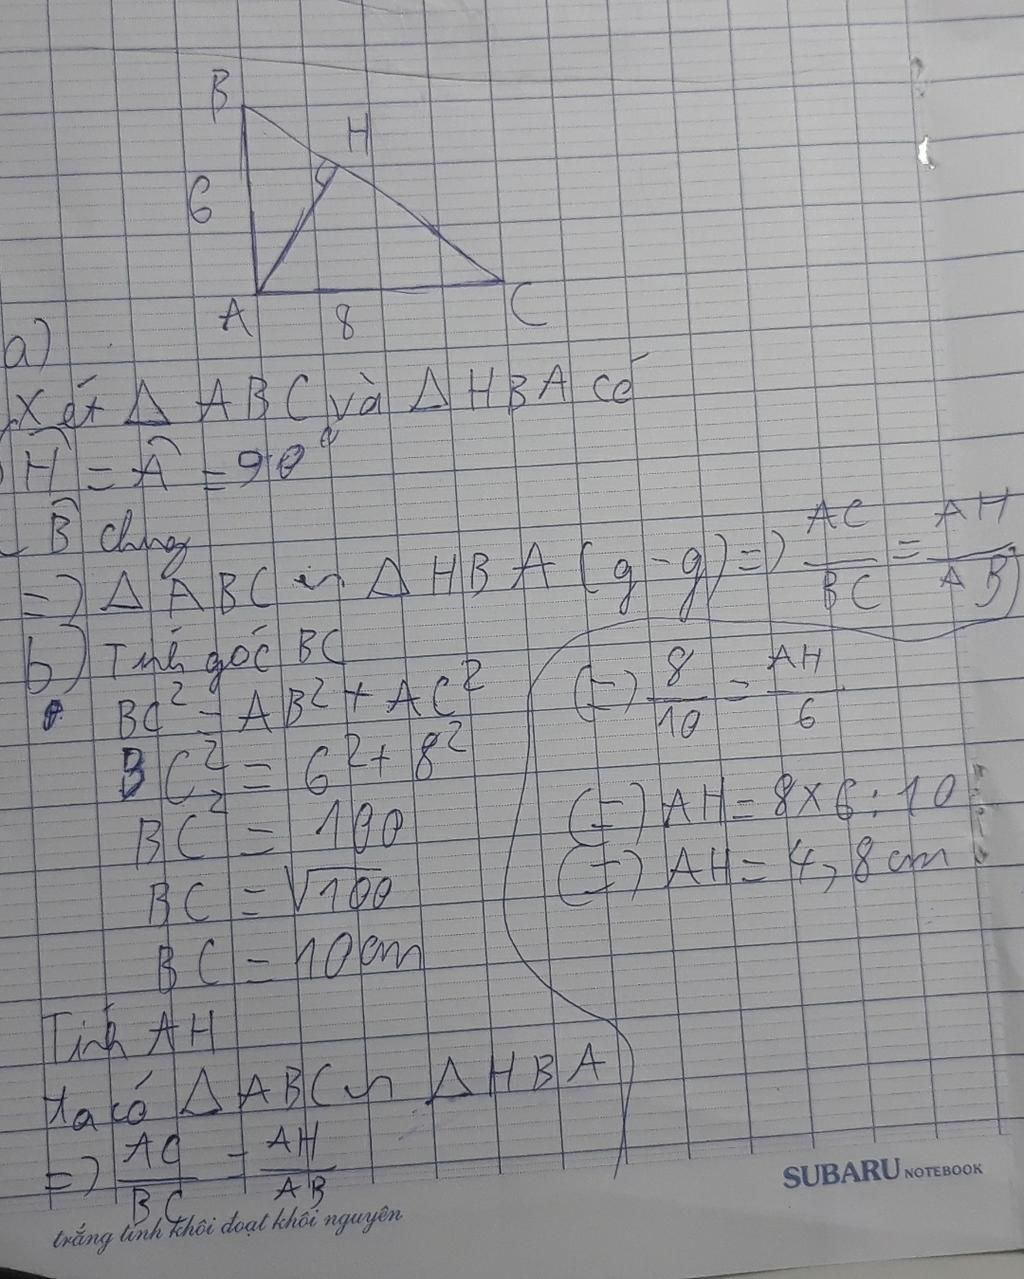 B
H
6
A
8
C
a)
Xét Δ ABC và Δ HBA có
Ĥ = Â = 90°
B̂ chung
=> Δ ABC ∽ Δ HBA (g-g) => AC/BC = AH/AB
b) Tính góc BC
BC² = AB² + AC²
BC² = 6² + 8²
BC² = 100
BC = √100
BC = 10cm
Tính AH
ta có Δ ABC ∽ Δ HBA
=> AC/BC = AH/AB
(=) 8/10 = AH/6
(=) AH = 8 x 6 : 10
(=) AH = 4,8 cm
SUBARU NOTEBOOK
trắng tinh khôi đoạt khôi nguyên